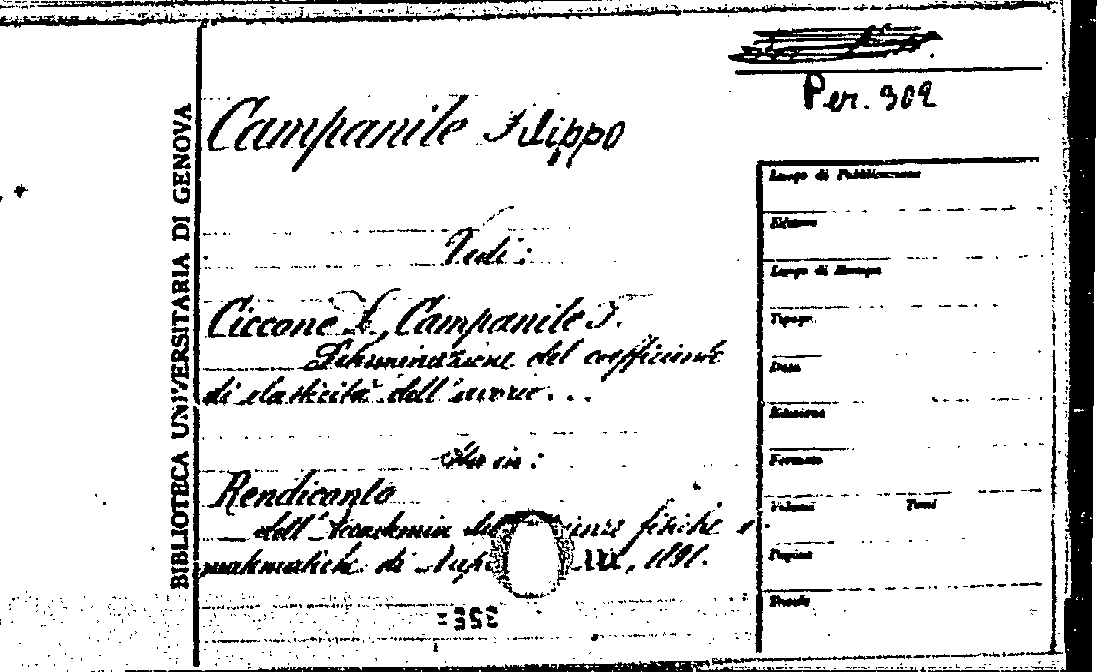 Per. 302
BIBLIOTECA UNIVERSITARIA DI GENOVA
Campanile Filippo
Vedi:
Ciccone L, Campanile F.
Determinazione del coefficiente
di elasticità dell'avorio...
Sta in:
Rendiconto
dell'Accademia fisiche e
matematiche di 1891.
Luogo di Pubblicazione
Edizione
Luogo di Stampa
Tipogr.
Data
Edizione
Formato
Volumi Tomi
Pagine